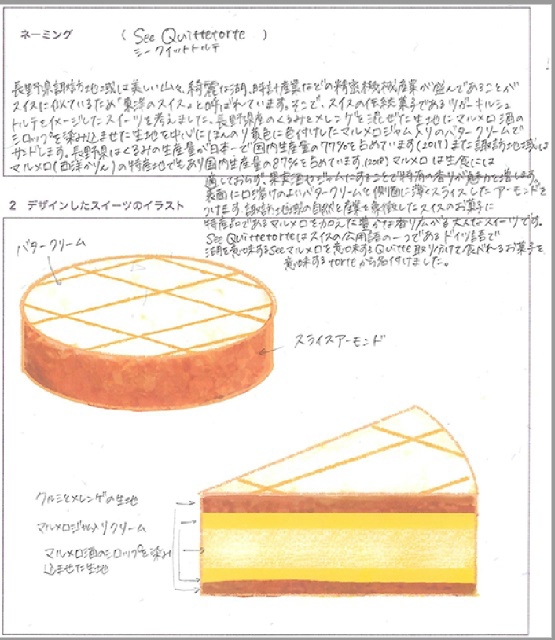 ネーミング ( See Quittetorte )
シー クヴィットトルテ
長野県諏訪地域は美しい山々、綺麗な湖、時計産業などの精密機械産業が盛んであることが
スイスに似ているため"東洋のスイス"と呼ばれています。そこで、スイスの伝統菓子であるツガーキルシュ
トルテをイメージしたスイーツを考えました。長野県産のくるみとメレンゲを混ぜた生地にマルメロ酒の
シロップを染み込ませた生地を中心にほんのり黄色に色付けしたマルメロジャム入りのバタークリームで
サンドします。長野県はくるみの生産量が日本一で国内生産量の77%を占めています(2017)また諏訪地域は
マルメロ(西洋かりん)の特産地でもあり国内生産量の87%を占めています。(2018)マルメロは生食には
適しておらず、果実酒やジャムにすることで特有の香りが
表面に口溶けのよいバタークリームと側面に薄くスライスしたアーモンドを
つけます。諏訪地域の自然と産業を象徴したスイスのお菓子に
特産品であるマルメロを加えた豊かな香り広がる大人なスイーツです。
See Quittetorteはスイスの公用語の一つであるドイツ語で
湖を意味するSeeマルメロを意味するQuitte 取り分けて食べれるお菓子を
意味するtorteから名付けました。
2 デザインしたスイーツのイラスト
バタークリーム
スライスアーモンド
クルミとメレンゲの生地
マルメロジャム入りクリーム
マルメロ酒のシロップを染み
込ませた生地